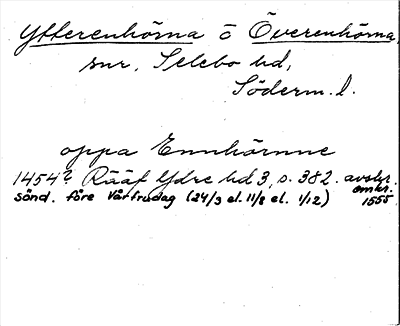 Ytterenhörna o Överenhörna,
snr, Selebo hd,
Söderm. l.
oppa Ennhörnne
1454? Rääf Ydre hd 3, s. 382. avskr. omkr. 1555.
sönd. före Vårfrudag (24/3 el. 11/8 el. 1/12)